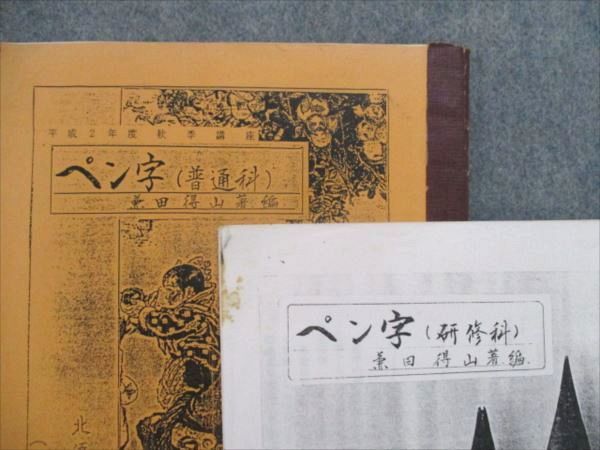 平成2年度秋季講座
ペン字(普通科)
兼田得山著編
北
ペン字(研修科)
兼田得山著編.